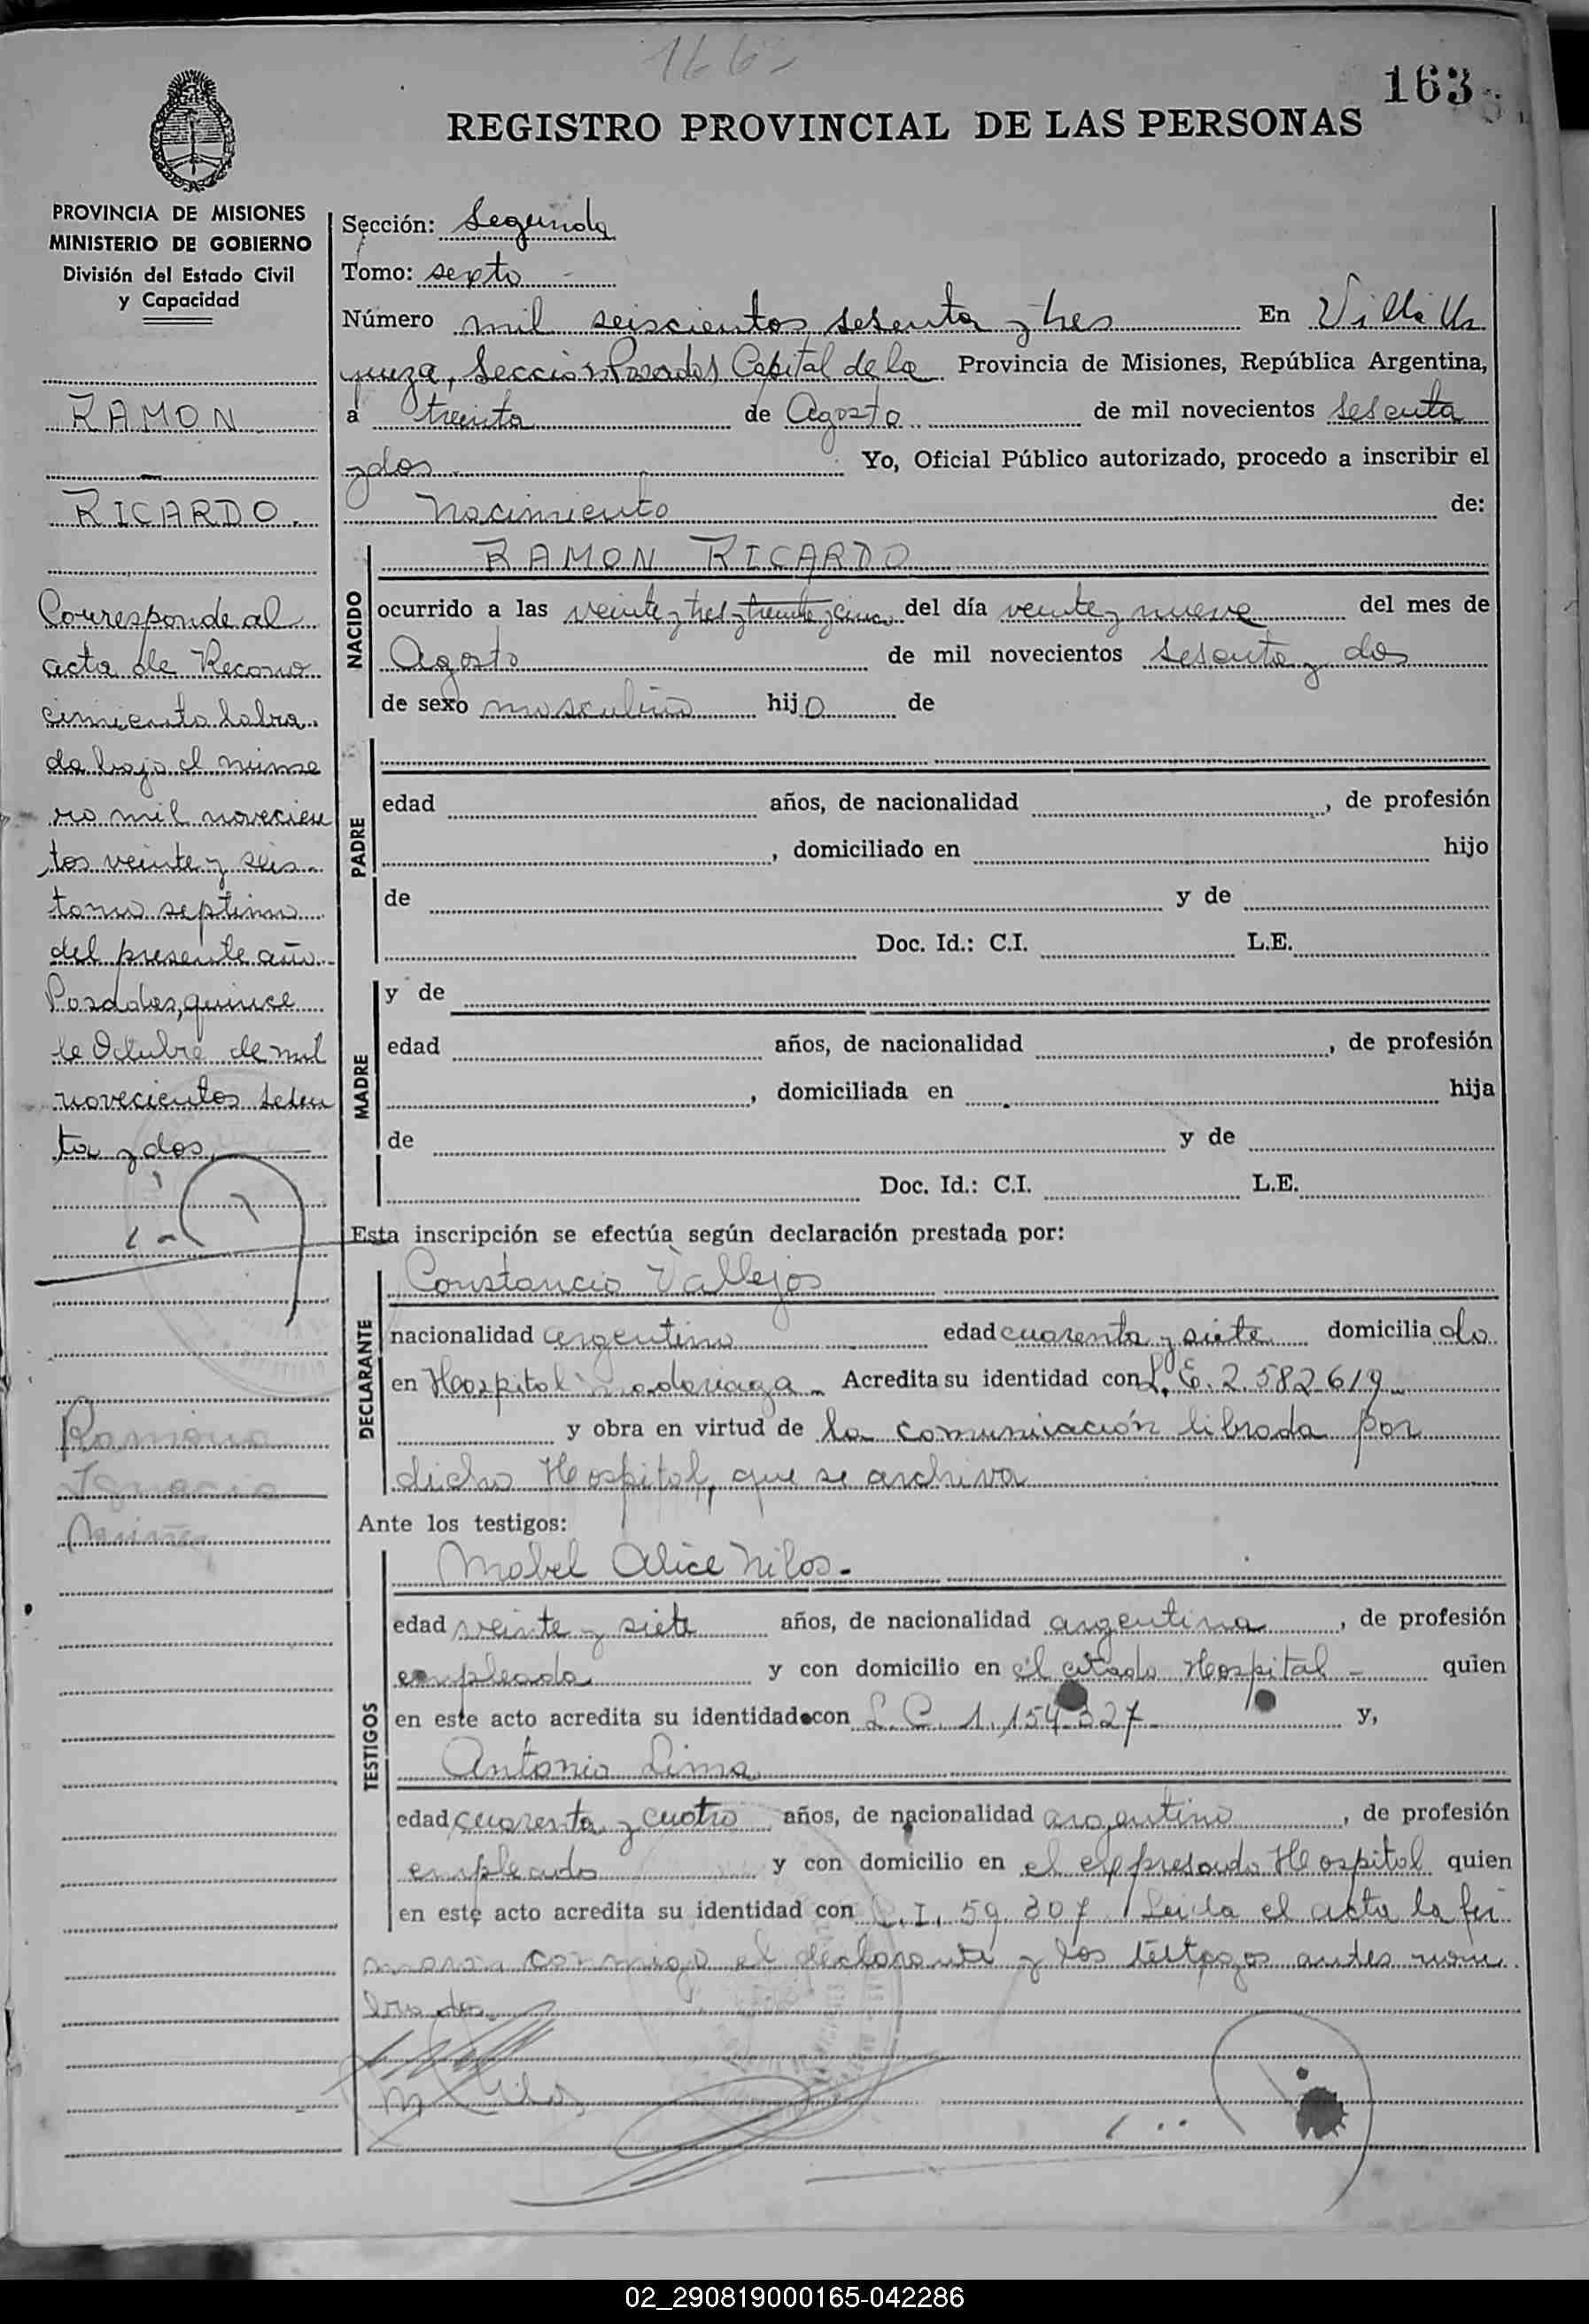 166
163
REGISTRO PROVINCIAL DE LAS PERSONAS
PROVINCIA DE MISIONES
MINISTERIO DE GOBIERNO
División del Estado Civil
y Capacidad
RAMON
RICARDO.
Corresponde al
acta de Recono
cimiento labra
da bajo el nume
ro mil novecien
tos veinte y seis
tomo septimo
del presente año.
Posadas, quince
de Octubre de mil
novecientos sesen
ta y dos,
Ramona
Ignacia
Sección: Segunda
Tomo: sexto
Número mil seiscientos sesenta y tres En Villa Ur
quiza, Sección Posadas Capital de la Provincia de Misiones, República Argentina,
a treinta de Agosto de mil novecientos sesenta
y dos Yo, Oficial Público autorizado, procedo a inscribir el
nacimiento de:
NACIDO
RAMON RICARDO
ocurrido a las veinte y tres y treinta y cinco del día veinte y nueve del mes de
Agosto de mil novecientos sesenta y dos
de sexo masculino hijo de
PADRE
edad años, de nacionalidad , de profesión
, domiciliado en hijo
de y de
Doc. Id.: C.I. L.E.
MADRE
y de
edad años, de nacionalidad , de profesión
, domiciliada en hija
de y de
Doc. Id.: C.I. L.E.
Esta inscripción se efectúa según declaración prestada por:
DECLARANTE
Constancio Vallejos
nacionalidad argentino edad cuarenta y siete domiciliado
en Hospital madariaga Acredita su identidad con L.E. 2.582.619
y obra en virtud de la comunicación librada por
dicho Hospital, que se archiva
Ante los testigos:
TESTIGOS
Mabel Alice Nilos.
edad veinte y siete años, de nacionalidad argentina, de profesión
empleada y con domicilio en el citado Hospital quien
en este acto acredita su identidad con L.C. 1.154.327 y,
Antonio Lima
edad cuarenta y cuatro años, de nacionalidad argentino, de profesión
empleado y con domicilio en el expresado Hospital quien
en este acto acredita su identidad con C.I. 59.307 Leida el acta la fir
maron conmigo el declarante y los testigos antes nom
brados
02_290819000165-042286